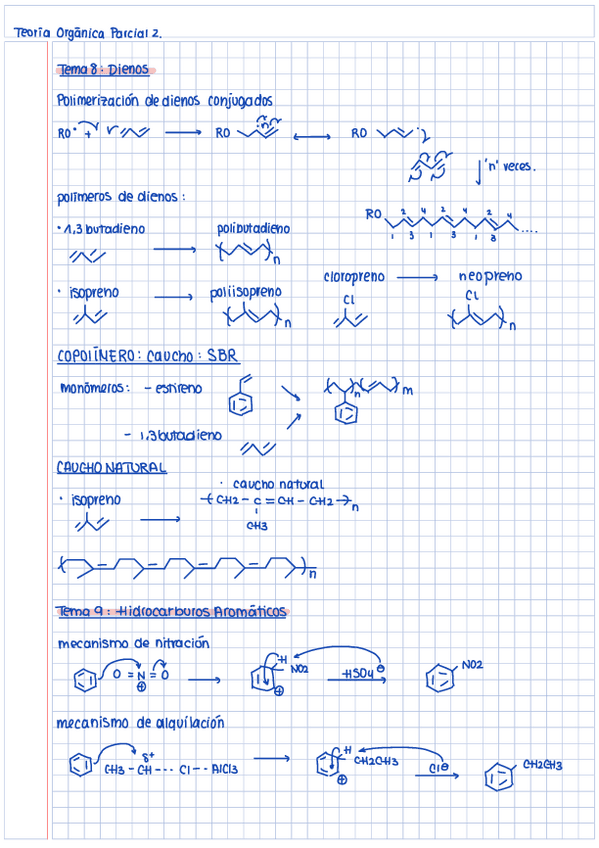 Teoría Orgánica Parcial 2.
Tema 8: Dienos
Polimerización de dienos conjugados
RO• + → RO ↔ RO
"n" veces.
polímeros de dienos:
RO 2 4 2 4 2 4 ....
1 3 1 3 1 3
• 1,3 butadieno → polibutadieno
n
cloropreno → neopreno
• isopreno → poliisopreno
Cl Cl
n n
COPOLÍNERO: caucho: SBR
monómeros: - estireno
n m
- 1,3 butadieno
CAUCHO NATURAL
• caucho natural
• isopreno
-(CH2 - C = CH - CH2)-n
CH3
n
Tema 9: Hidrocarburos Aromáticos
mecanismo de nitración
O = N = O → H NO2 HSO4⊖ → NO2
⊕ ⊕
mecanismo de alquilación
δ+ H
CH3 - CH --- Cl -- AlCl3 → CH2CH3 Cl⊖ → CH2CH3
⊕